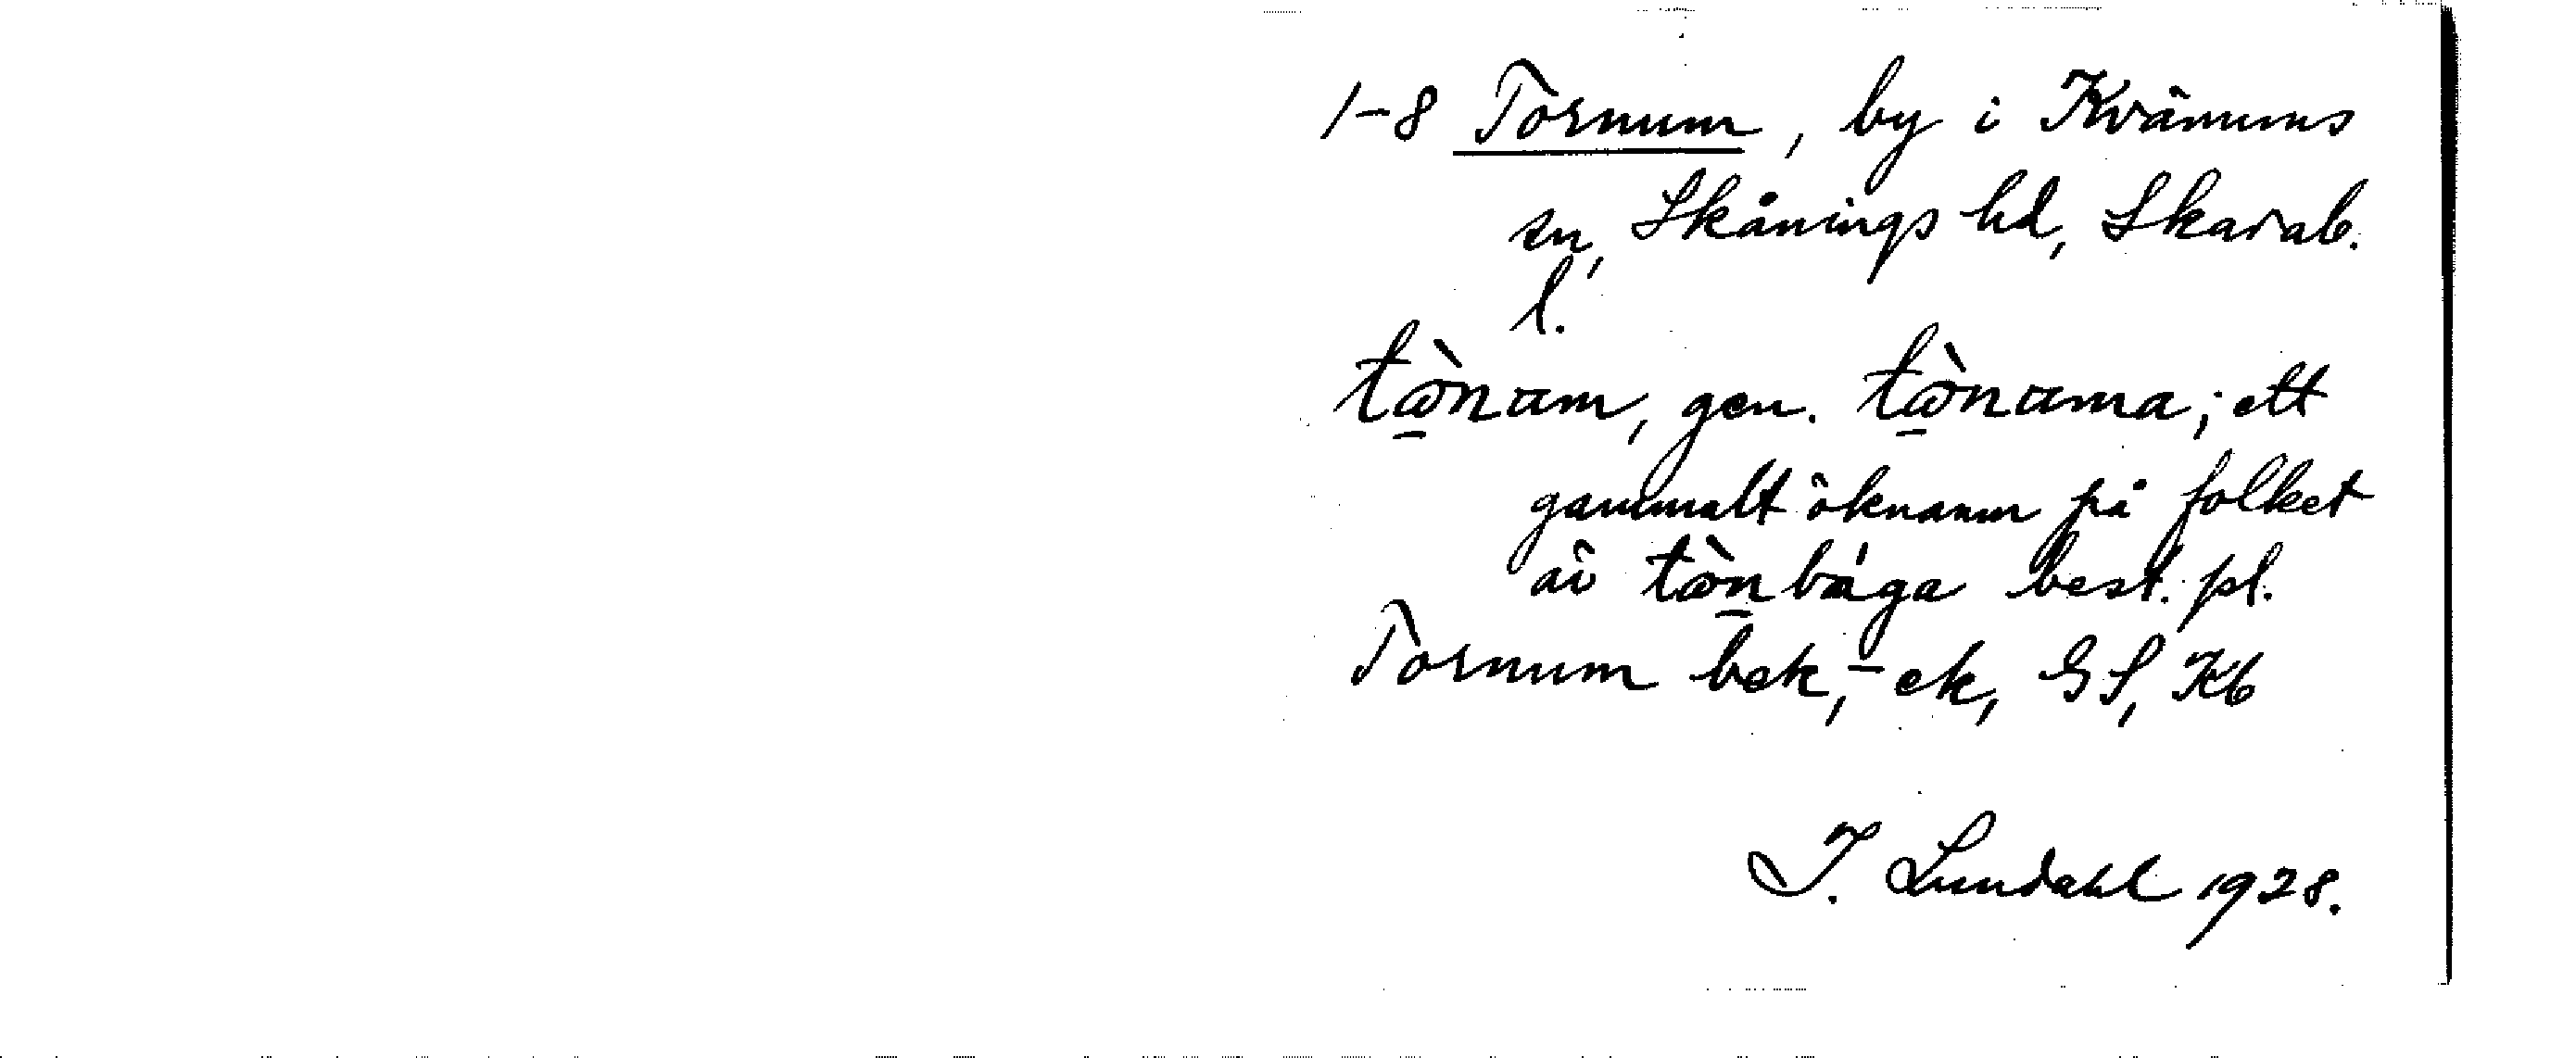 1-8 Tornum, by i Kvänums
sn, Skånings hd, Skarab.
l.
tònam, gen. tònama; ett
gammalt öknamn på folket
är tònbága best. pl.
Tornum bek, - ek, GS, Kb
I. Lundahl 1928.